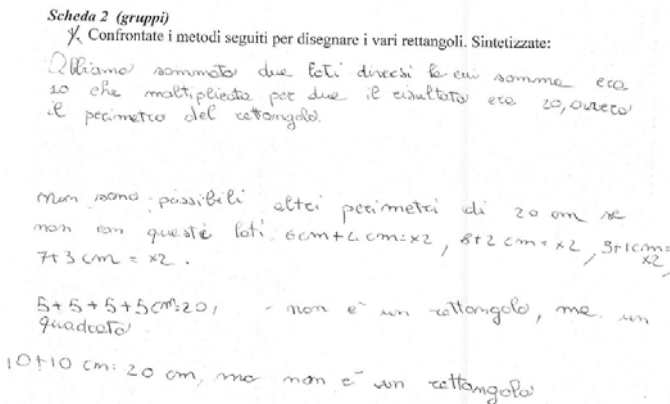 Scheda 2 (gruppi)
Confrontate i metodi seguiti per disegnare i vari rettangoli. Sintetizzate:
Abbiamo sommato due lati diversi la cui somma era
10 che moltiplicata per due il risultato era 20, ovvero
il perimetro del rettangolo.
Non sono possibili altri perimetri di 20 cm se
non con queste lati: 6cm+4cm=x2, 8+2 cm=x2, 9+1cm=
x2,
7+3 cm = x2.
5+5+5+5cm=20, - non è un rettangolo, ma un
quadrato.
10+10 cm: 20 cm, ma non è un rettangolo